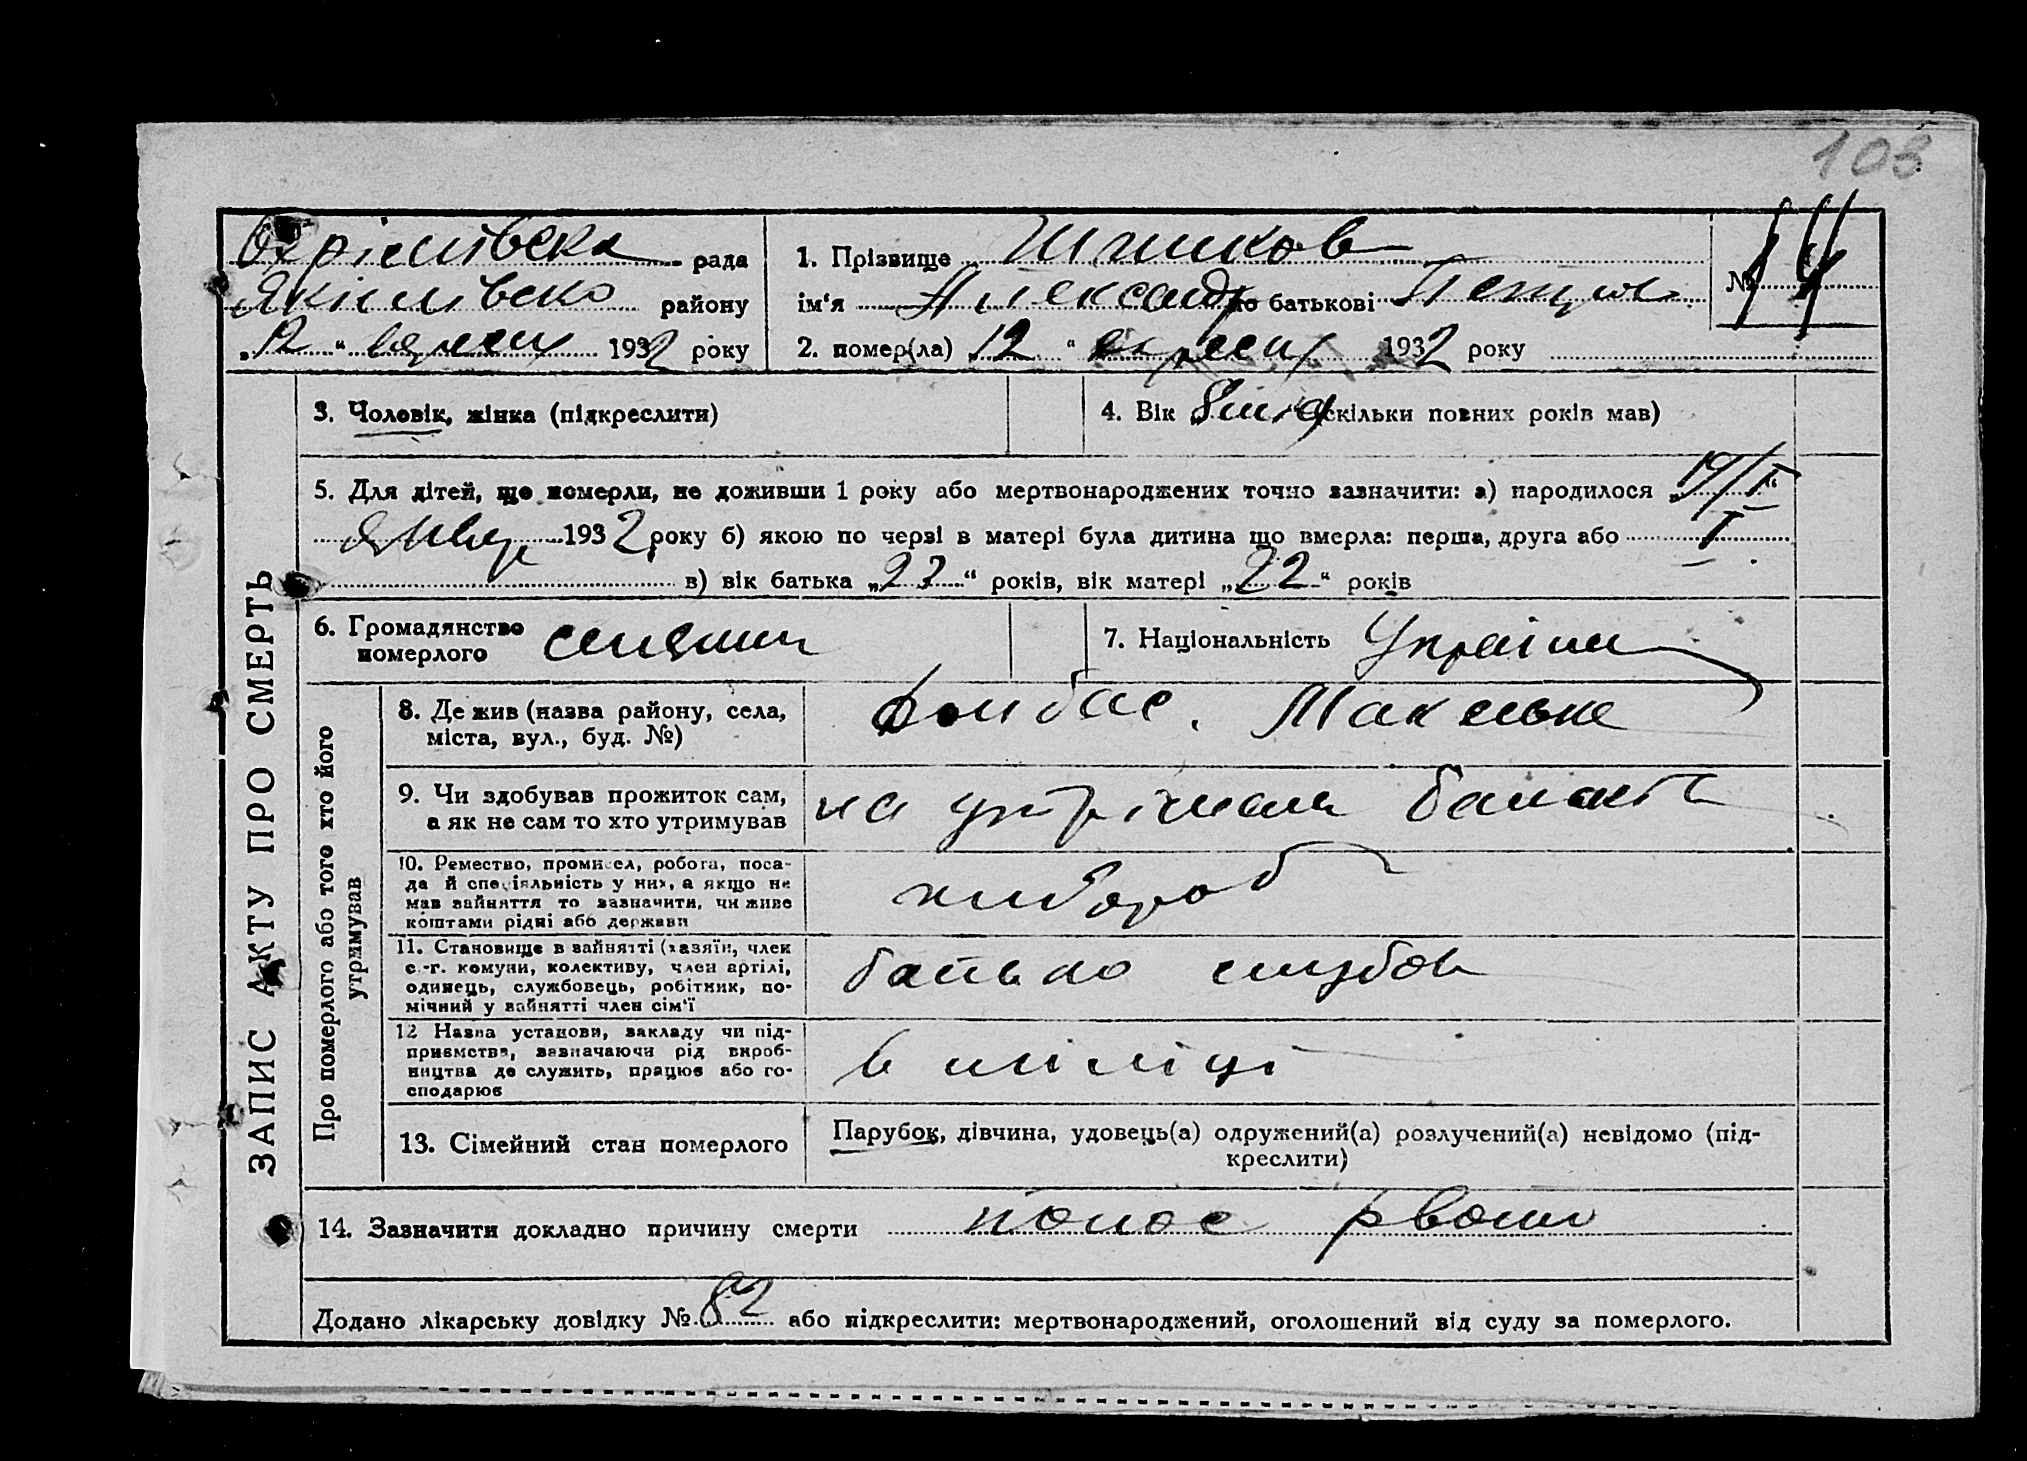 103
рада 1. Прізвище
Якимівсько району ім'я Александр по батькові Петров № 14
„12“ вересня 1932 року 2. помер(ла) 12 “ вересня 1932 року
3. Чоловік, жінка (підкреслити) 4. Вік 8 (скільки повних років мав)
5. Для дітей, що померли, не доживши 1 року або мертвонароджених точно зазначити: а) народилося „14/I“
1932 року б) якою по черзі в матері була дитина що вмерла: перша, друга або I
в) вік батька „23“ років, вік матері „22“ років
6. Громадянство
померлого
7. Національність Україн
8. Де жив (назва району, села,
міста, вул., буд. №)
Донбас.
9. Чи здобував прожиток сам,
а як не сам то хто утримував
на утрімани батькі
10. Ремество, промисел, робота, поса-
да й спеціяльність у них, а якщо не
мав зайняття то зазначити, чи живе
коштами рідні або держави
хлібороб
11. Становище в зайнятті (хазяїн, член
с.-г. комуни, колективу, член артілі,
одинець, службовець, робітник, по-
мічний у зайнятті член сім'ї
батько службов
12 Назва установи, закладу чи під-
приємства, зазначаючи рід вироб-
ництва де служить, працює або го-
сподарює
в міліці
13. Сімейний стан померлого
Парубок, дівчина, удовець(а) одружений(а) розлучений(а) невідомо (під-
креслити)
14. Зазначити докладно причину смерти понос рвота
Додано лікарську довідку № 82 або підкреслити: мертвонароджений, оголошений від суду за померлого.
ЗАПИС АКТУ ПРО СМЕРТЬ
Про померлого або того хто його
утримував